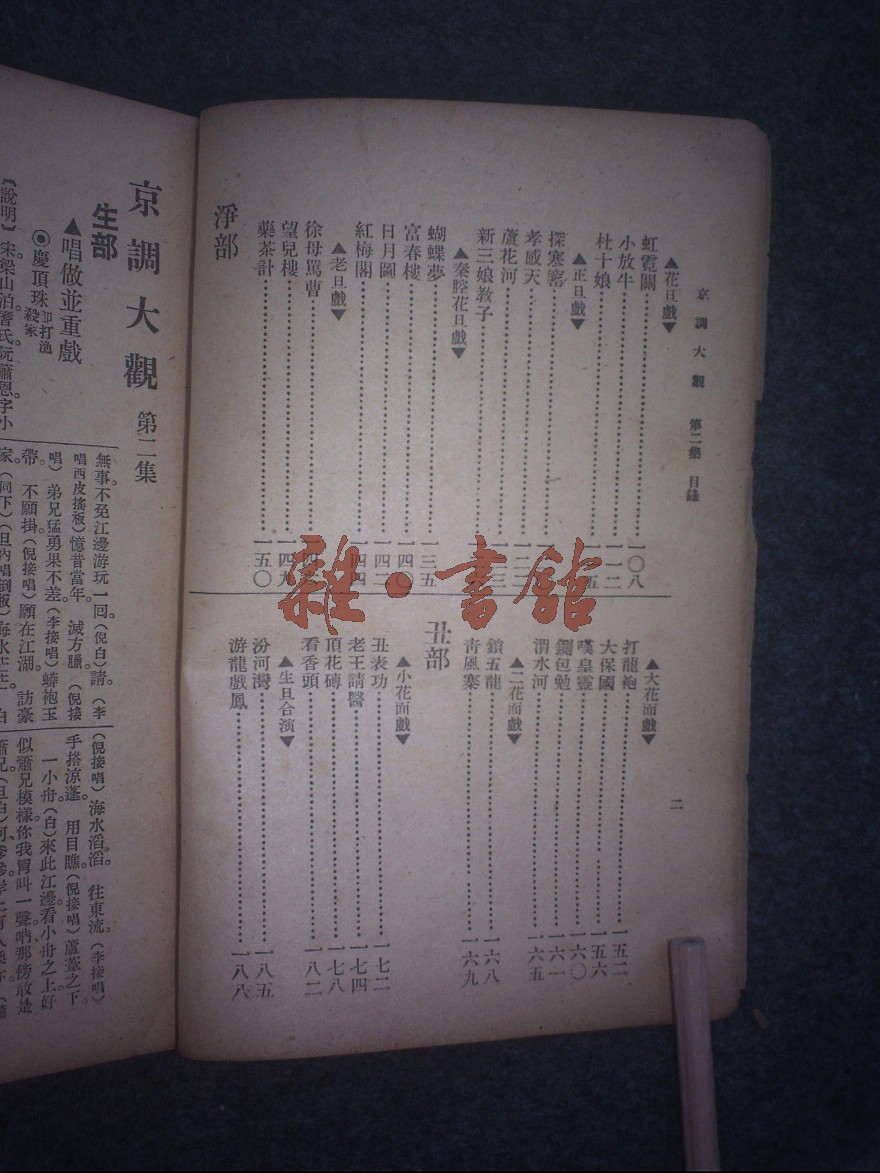 京調大觀 第二集 目錄
二
▲花旦戲▼
虹霓關……一〇八
小放牛……一一二
杜十娘……一一五
▲正旦戲▼
探寒窰……
孝感天……一二二
蘆花河……
新三娘教子……
▲秦腔花旦戲▼
蝴蝶夢……一三五
富春樓……一四〇
日月圖……一四二
紅梅閣……一四四
▲老旦戲▼
徐母罵曹……
望兒樓……一四九
藥茶計……一五〇
淨部
▲大花面戲▼
打龍袍……一五二
大保國……一五六
嘆皇靈……一六〇
鍘包勉……一六一
渭水河……一六五
▲二花面戲▼
鎖五龍……一六八
青風寨……一六九
丑部
▲小花面戲▼
丑表功……一七二
老王請醫……一七四
頂花磚……一七八
看香頭……一八二
▲生旦合演▼
汾河灣……一八五
游龍戲鳳……一八八
雜·書館
京調大觀 第二集
生部
▲唱做並重戲
◉慶頂珠 卽打漁殺家
〔說明〕宋梁山泊舊氏阮蕭恩字小
無事不免江邊游玩一回。(倪白)請(李
唱西皮搖板)憶昔當年。滅方臘(倪接
唱)弟兄猛勇果不差(李接唱)蟒袍玉
帶。不願掛(倪接唱)願在江湖。訪豪
家。(同下)(旦內唱倒板)海水茫茫。白
(倪接唱)海水滔滔。往東流。(李接唱)
手搭涼蓬。用目瞧(倪接唱)蘆葦之下。
一小舟(白)來此江邊看小舟之上好
似蕭兄模樣你我冐叫一聲吶那傍敢是
蕭兄(旦白)